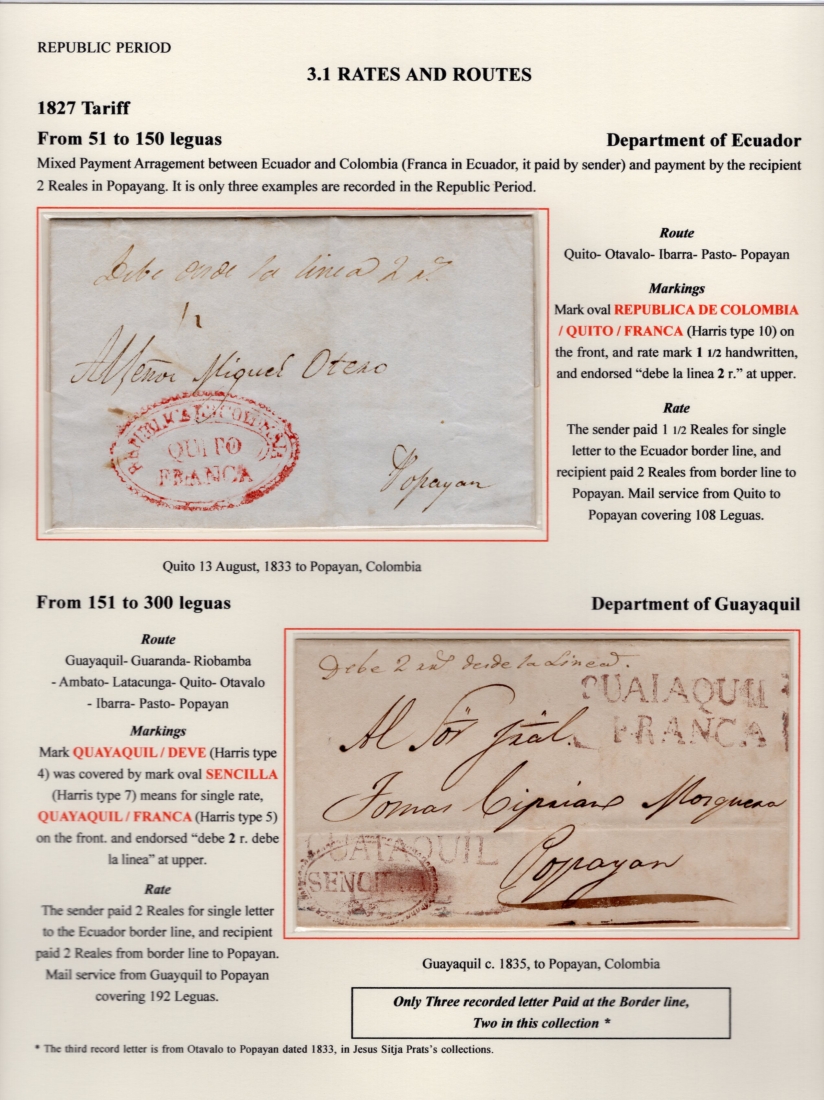 REPUBLIC PERIOD
3.1 RATES AND ROUTES
1827 Tariff
From 51 to 150 leguas
Department of Ecuador
Mixed Payment Arragement between Ecuador and Colombia (Franca in Ecuador, it paid by sender) and payment by the recipient
2 Reales in Popayang. It is only three examples are recorded in the Republic Period.
Debe desde la linea 2 rs.
Al Señor Miguel Otero
REPUBLICA DE COLOMBIA
QUITO
FRANCA
Popayan
Route
Quito- Otavalo- Ibarra- Pasto- Popayan
Markings
Mark oval REPUBLICA DE COLOMBIA
/ QUITO / FRANCA (Harris type 10) on
the front, and rate mark 1 1/2 handwritten,
and endorsed “debe la linea 2 r.” at upper.
Rate
The sender paid 1 1/2 Reales for single
letter to the Ecuador border line, and
recipient paid 2 Reales from border line to
Popayan. Mail service from Quito to
Popayan covering 108 Leguas.
Quito 13 August, 1833 to Popayan, Colombia
From 151 to 300 leguas
Department of Guayaquil
Route
Guayaquil- Guaranda- Riobamba
- Ambato- Latacunga- Quito- Otavalo
- Ibarra- Pasto- Popayan
Markings
Mark QUAYAQUIL / DEVE (Harris type
4) was covered by mark oval SENCILLA
(Harris type 7) means for single rate,
QUAYAQUIL / FRANCA (Harris type 5)
on the front. and endorsed “debe 2 r. debe
la linea” at upper.
Rate
The sender paid 2 Reales for single letter
to the Ecuador border line, and recipient
paid 2 Reales from border line to Popayan.
Mail service from Guayquil to Popayan
covering 192 Leguas.
Debe 2 rs desde la Linea.
GUAIAQUIL
FRANCA
Al Sör Jral.
Tomas Cipriano Mosquera
Popayan
GUAIAQUIL
SENCILLA
Guayaquil c. 1835, to Popayan, Colombia
Only Three recorded letter Paid at the Border line,
Two in this collection *
* The third record letter is from Otavalo to Popayan dated 1833, in Jesus Sitja Prats's collections.